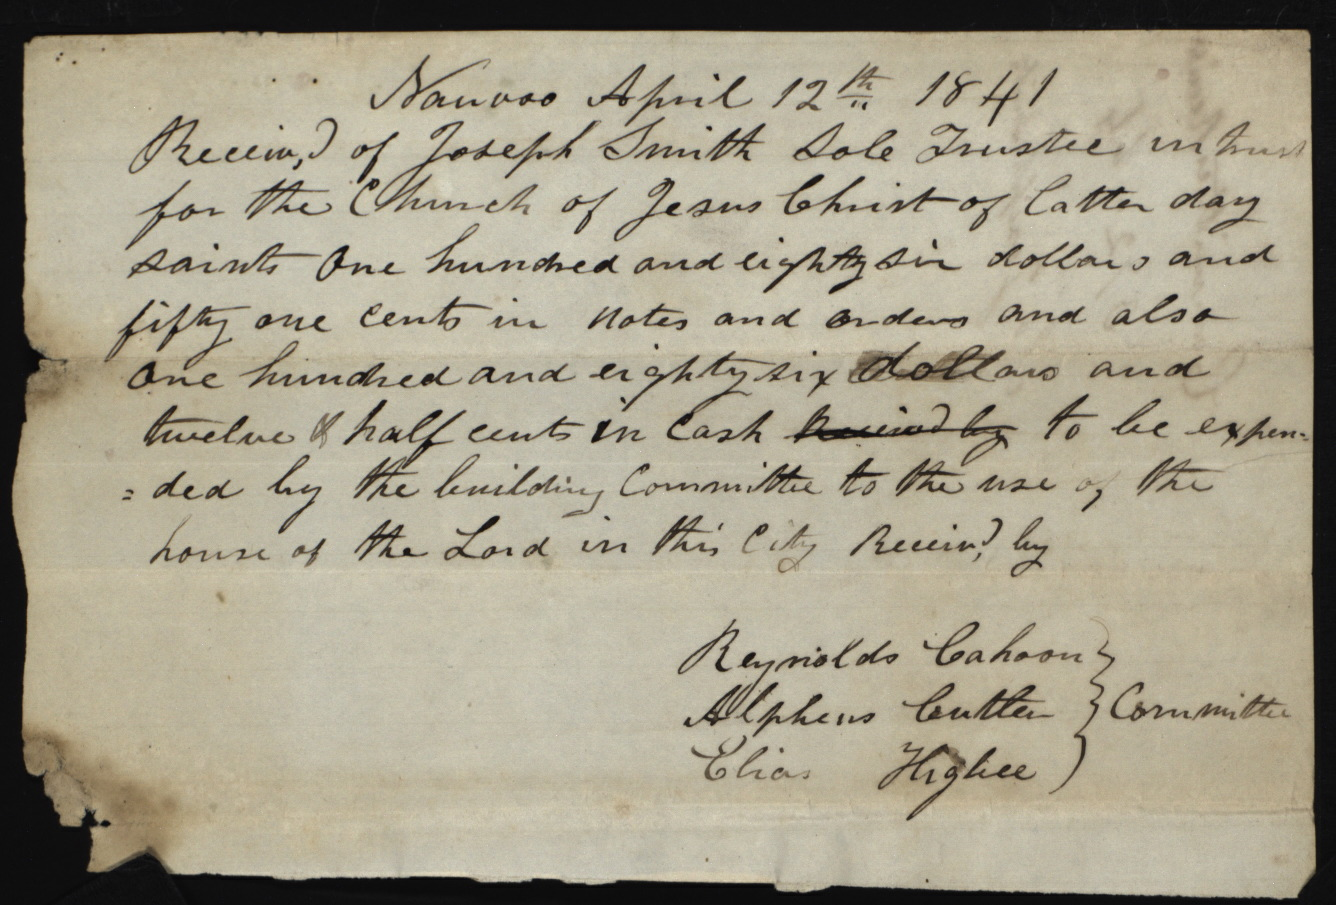 Nauvoo April 12th 1841
Receiv,d of Joseph Smith Sole Trustee in trust
for the Church of Jesus Christ of Latter day
saints One hundred and eighty six dollars and
fifty one cents in notes and orders and also
One hundred and eighty six dollars and
twelve & half cents in Cash Receivd by to be expen=
=ded by the building Committee to the use of the
house of the Lord in this City Receiv,d by
Reynolds Cahoon
Alpheus Cutler } Committee
Elias Higbee